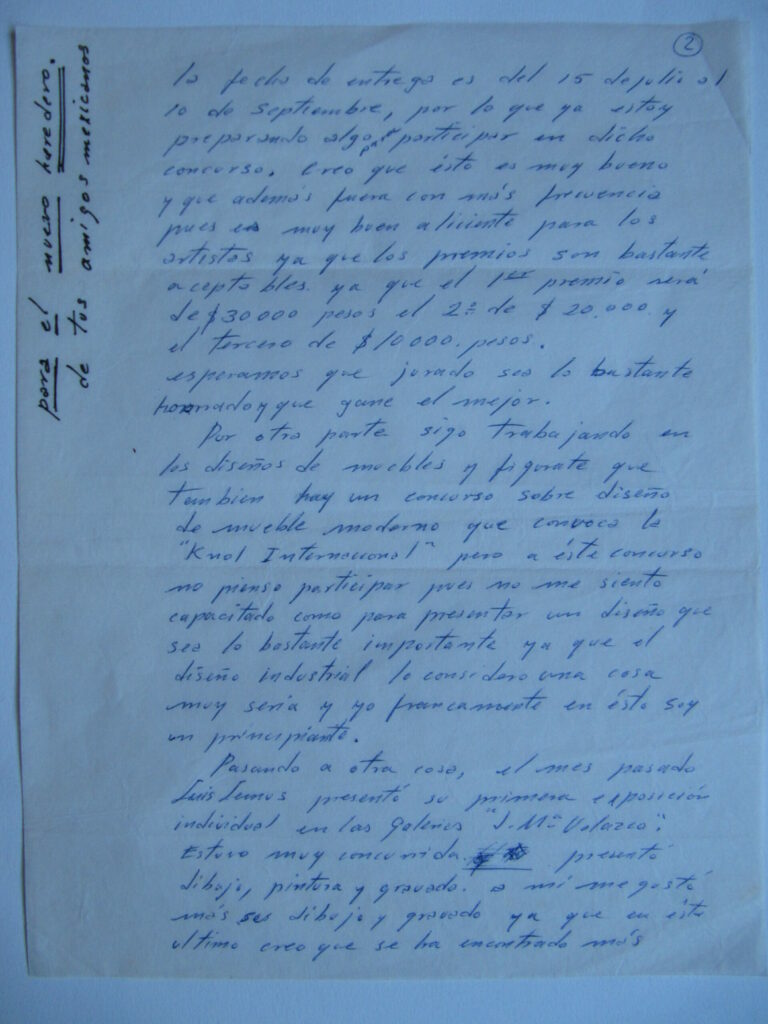 2
la fecha de entrega es del 15 de julio al
10 de septiembre, por lo que ya estoy
preparando algo pa participar en dicho
concurso. Creo que ésto es muy bueno
y que además fuera con más frecuencia
pues es muy buen aliciente para los
artistas ya que los premios son bastante
aceptables. ya que el 1er premio será
de $30000 pesos el 2º de $20.000. y
el tercero de $10000. pesos.
esperamos que jurado sea lo bastante
honrado y que gane el mejor.
Por otra parte sigo trabajando en
los diseños de muebles y figurate que
tambien hay un concurso sobre diseño
de mueble moderno que convoca la
"Knol Internacional" pero a éste concurso
no pienso participar pues no me siento
capacitado como para presentar un diseño que
sea lo bastante importante ya que el
diseño industrial lo considero una cosa
muy seria y yo francamente en ésto soy
un principiante.
Pasando a otra cosa, el mes pasado
Luis Lemus presentó su primera exposición
individual en las Galerias "J. Mª Velazco".
Estuvo muy concurrida. presentó
dibujo, pintura y gravado. a mi me gustó
más su dibujo y gravado ya que en éste
ultimo creo que se ha encontrado más
para el nuevo heredero.
de tus amigos mexicanos